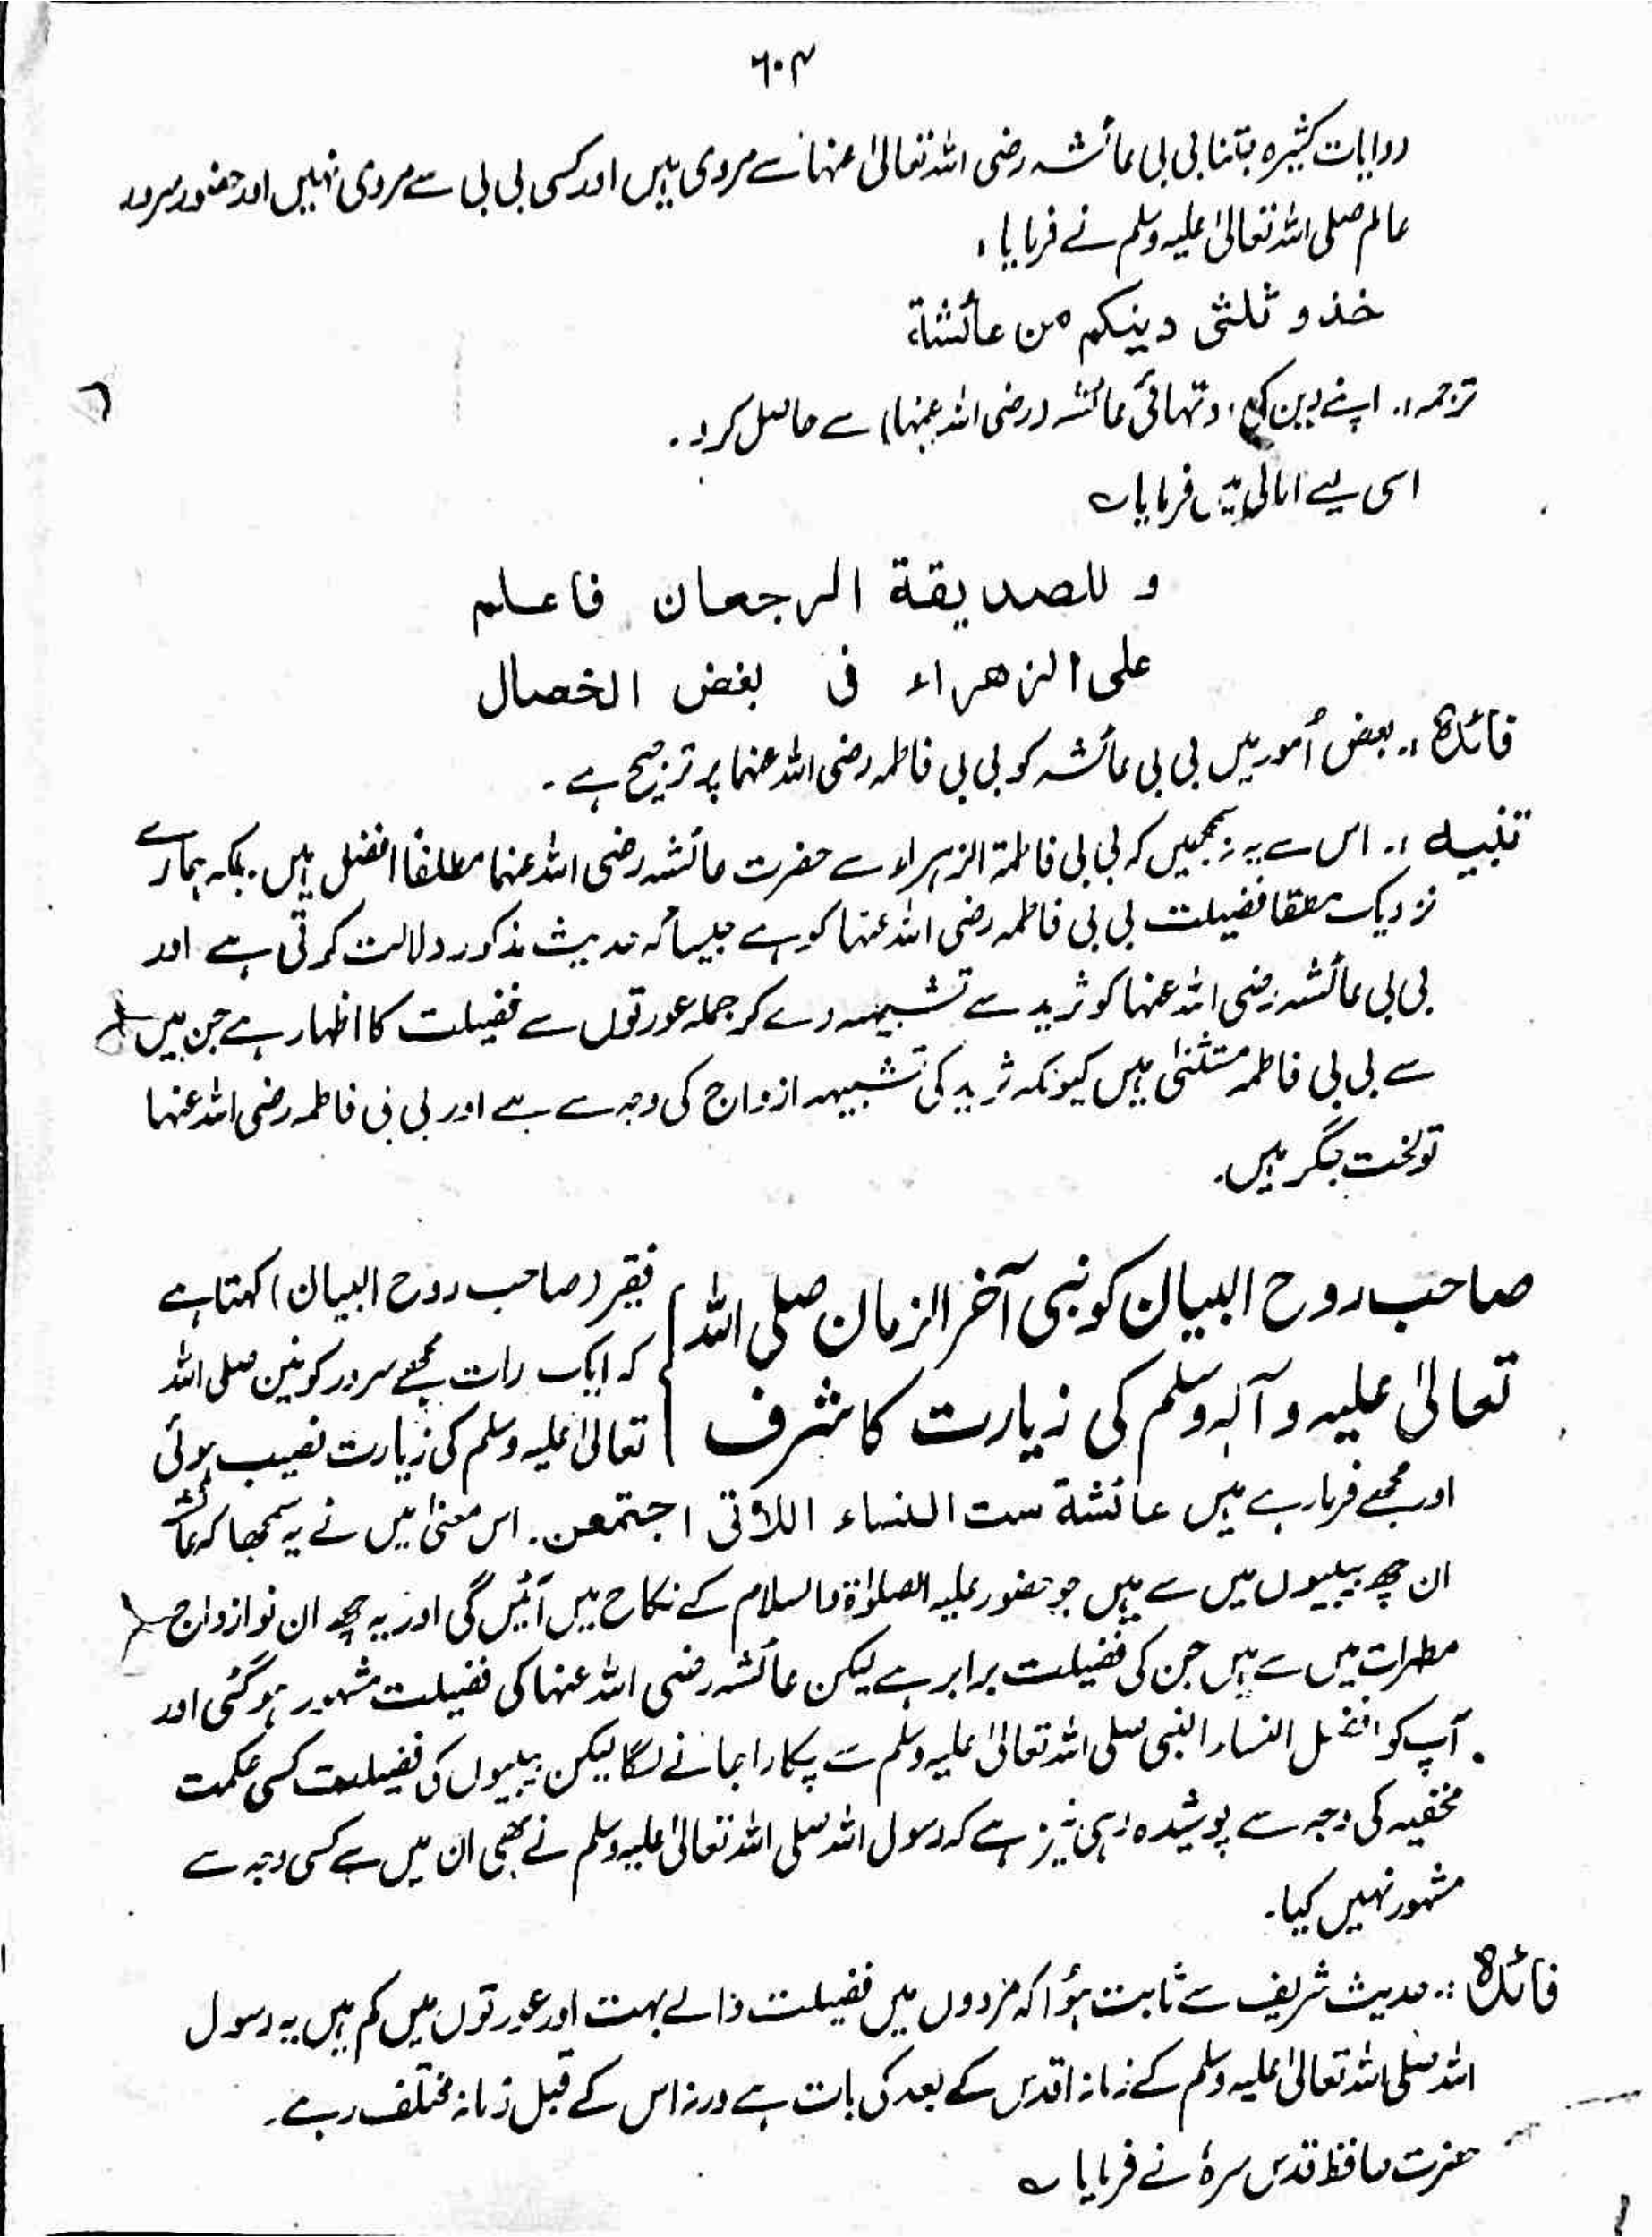 ۶۰۴
روایات کثیرہ جتنا بی بی عائشہ رضی اللہ تعالیٰ عنہا سے مروی ہیں اور کسی بی بی سے مروی نہیں اور حضور سرور
عالم صلی اللہ تعالیٰ علیہ وسلم نے فرمایا،
خذو ثلثی دینکم من عائشة
ترجمہ:۔ اپنے دین کی دو تہائی عائشہ (رضی اللہ عنہا) سے حاصل کرو۔
اسی لیے امالی میں فرمایا ے
و للصدیقة الرجعان فاعلم
علی الزهراء فی بغض الخصال
فائدہ:۔ بعض اُمور میں بی بی عائشہ کو بی بی فاطمہ رضی اللہ عنہما پر ترجیح ہے۔
تنبیہ:۔ اس سے یہ نہ سمجھیں کہ بی بی فاطمۃ الزہراء سے حضرت عائشہ رضی اللہ عنہما مطلقا افضل ہیں۔ بلکہ ہمارے
نزدیک مطلقا فضیلت بی بی فاطمہ رضی اللہ عنہا کو ہے جیسا کہ حدیث مذکور دلالت کرتی ہے اور
بی بی عائشہ رضی اللہ عنہا کو ثرید سے تشبیہہ دے کر جملہ عورتوں سے فضیلت کا اظہار ہے جن میں
سے بی بی فاطمہ مستثنیٰ ہیں کیونکہ ثرید کی تشبیہہ ازواج کی وجہ سے ہے اور بی بی فاطمہ رضی اللہ عنہا
تو لخت جگر ہیں۔
صاحب روح البیان کو نبی آخر الزمان صلی اللہ
تعالیٰ علیہ وآلہٖ وسلم کی زیارت کا شرف
فقیر (صاحب روح البیان) کہتا ہے
کہ ایک رات مجھے سرور کونین صلی اللہ
تعالیٰ علیہ وسلم کی زیارت نصیب ہوئی
اور مجھے فرما رہے ہیں عائشة ست النساء اللاتی اجتمعن۔ اس معنیٰ میں نے یہ سمجھا کہ عائشہ
ان چھ بیبیوں میں سے ہیں جو حضور علیہ الصلوٰۃ والسلام کے نکاح میں آئیں گی اور یہ چھ ان نو ازواج
مطہرات میں سے ہیں جن کی فضیلت برابر ہے لیکن عائشہ رضی اللہ عنہا کی فضیلت مشہور ہو گئی اور
آپ کو افضل النساء النبی صلی اللہ تعالیٰ علیہ وسلم سے پکارا جانے لگا لیکن بیبیوں کی فضیلت کسی حکمت
مخفیہ کی وجہ سے پوشیدہ رہی نیز ہے کہ رسول اللہ صلی اللہ تعالیٰ علیہ وسلم نے بھی ان میں سے کسی وجہ سے
مشہور نہیں کیا۔
فائدہ:۔ حدیث شریف سے ثابت ہؤا کہ مردوں میں فضیلت والے بہت اور عورتوں میں کم ہیں یہ رسول
اللہ صلی اللہ تعالیٰ علیہ وسلم کے زمانہ اقدس کے بعد کی بات ہے ورنہ اس کے قبل زمانہ مختلف رہے۔
حضرت حافظ قدس سرہٗ نے فرمایا ے